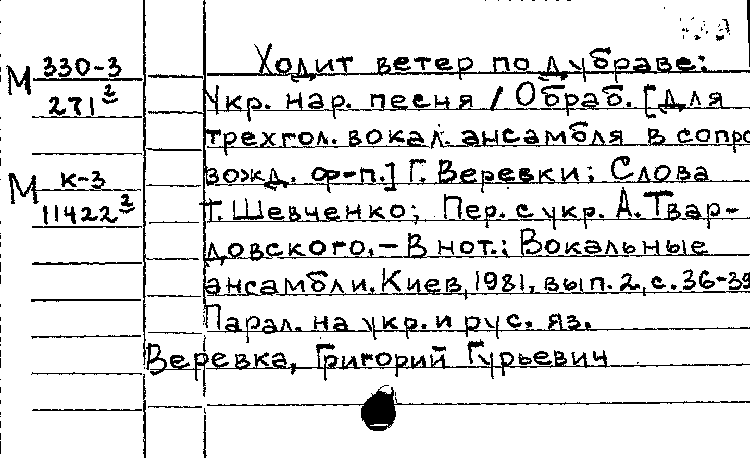 Ходит ветер по дубраве:
М 330-3
271²
Укр. нар. песня / Обраб. [для
трехгол. вокал. ансамбля в сопро
вожд. ф-п.] Г. Веревки; Слова
М К-3
11422²
Т. Шевченко; Пер. с укр. А. Твар-
довского. – В нот.: Вокальные
ансамбли. Киев, 1981, вып. 2, с. 36-39
Парал. на укр. и рус. яз.
Веревка, Григорий Гурьевич